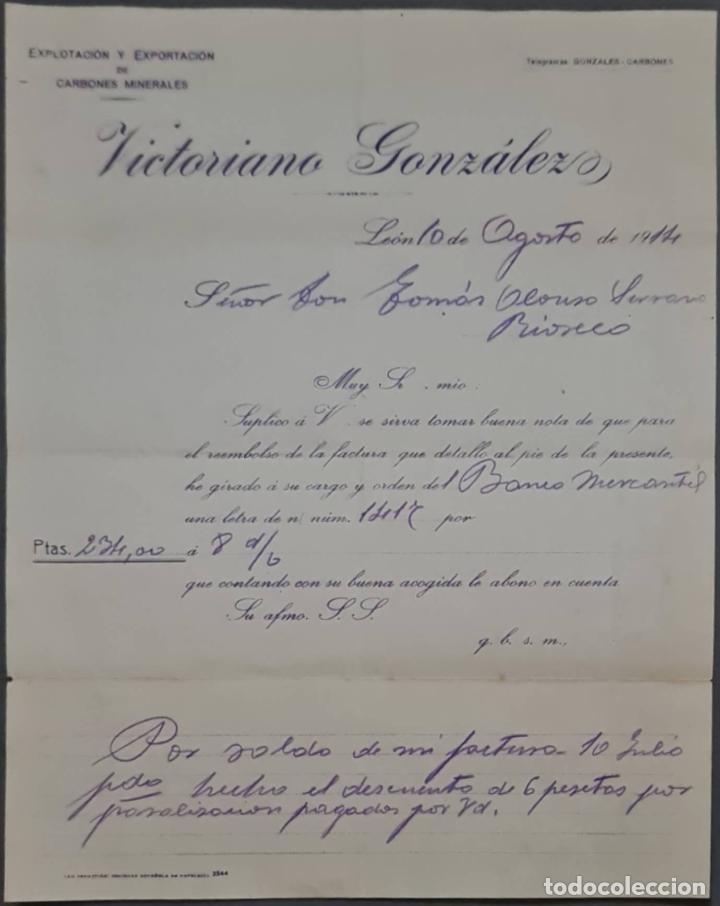 EXPLOTACIÓN Y EXPORTACIÓN
DE
CARBONES MINERALES
Telegramas: GONZALES-CARBONES
Victoriano González
León 10 de Agosto de 1914
Señor Don Tomás Alonso Serrano
Rioseco
Muy Sr. mio:
Suplico á V. se sirva tomar buena nota de que para
el reembolso de la factura que detallo al pie de la presente,
he girado á su cargo y orden del Banco Mercantil
una letra de n/ núm. 1417 por
Ptas. 234,00 á 8 d/v
que contando con su buena acogida le abono en cuenta
Su afmo. S. S.
q. b. s. m.,
Por saldo de mi factura 10 Julio
pdo hecho el descuento de 6 pesetas por
paralizacion pagados por Vd.
SOCIEDAD ESPAÑOLA DE PAPELERÍA 2544
todocoleccion
todocoleccion.net